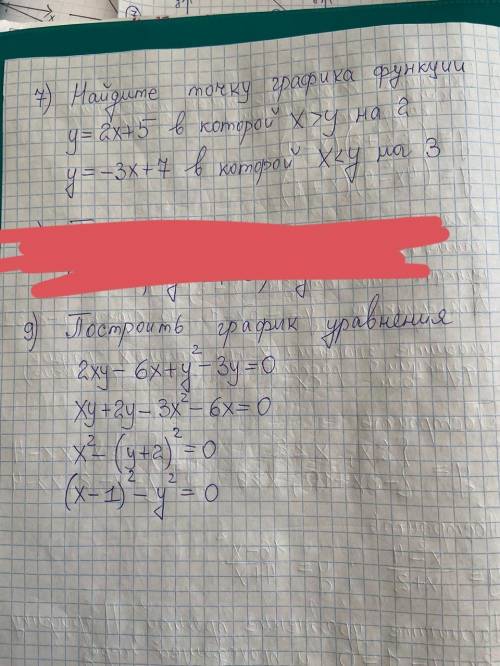 7) Найдите точку графика функции
y=2x+5 в которой x>y на 2
y=-3x+7 в которой x<y на 3
9) Построить график уравнения
2xy-6x+y²-3y=0
xy+2y-3x²-6x=0
x²-(y+2)²=0
(x-1)²-y²=0